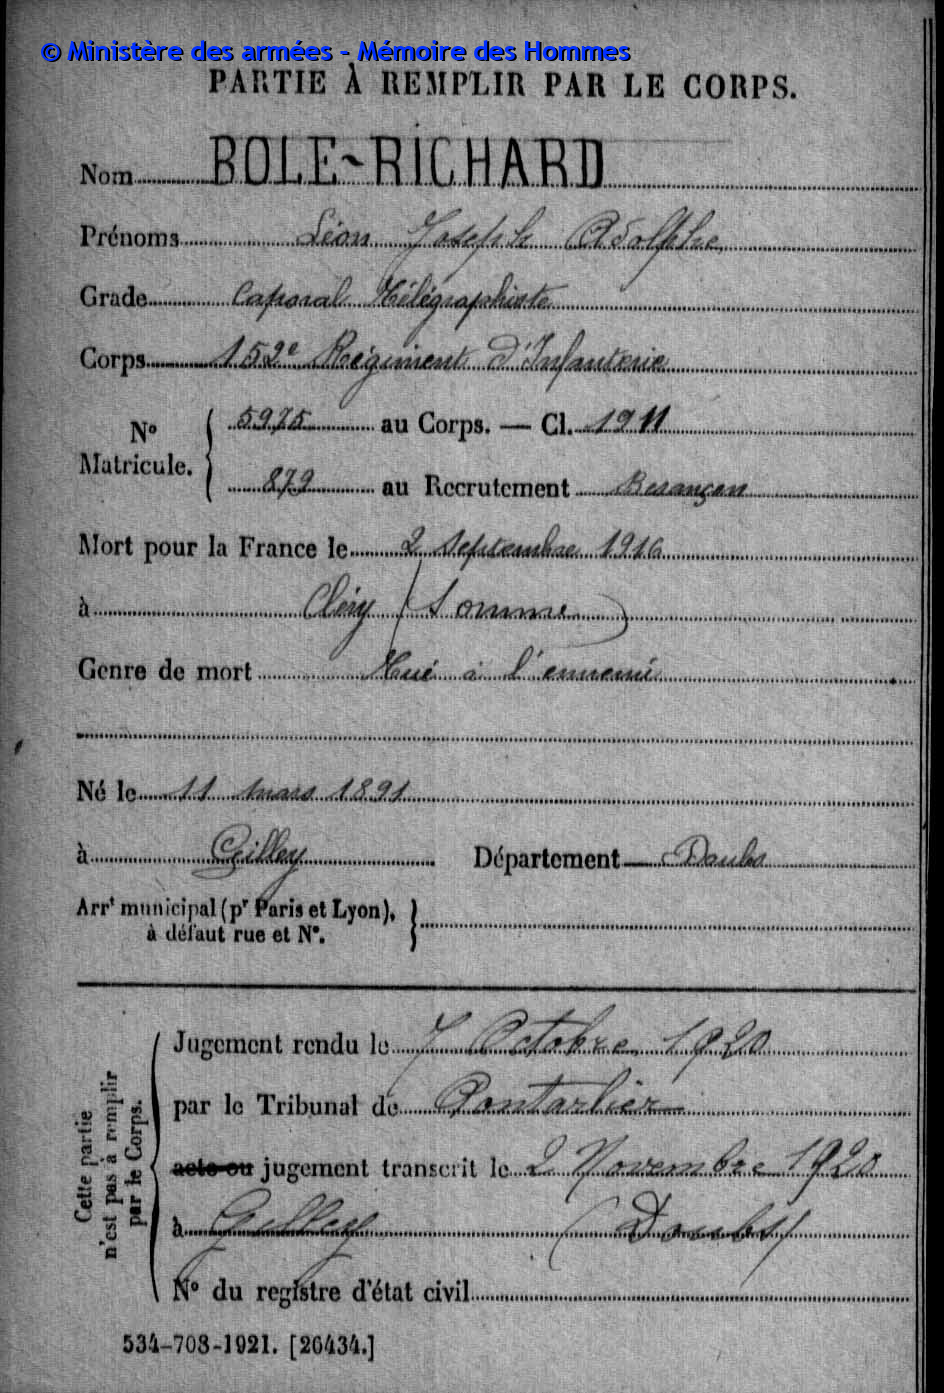 © Ministère des armées - Mémoire des Hommes
PARTIE À REMPLIR PAR LE CORPS.
Nom BOLE-RICHARD
Prénoms Léon Joseph Adolphe
Grade Caporal Télégraphiste
Corps 152e Régiment d'Infanterie
No Matricule. { 5975 au Corps. — Cl. 1911
879 au Recrutement Besançon
Mort pour la France le 2 Septembre 1916
à Cléry (Somme)
Genre de mort Tué à l'ennemi
Né le 11 mars 1891
à Gilley Département Doubs
Arrt municipal (pr Paris et Lyon),
à défaut rue et No.
Cette partie
n'est pas à remplir
par le Corps.
Jugement rendu le 7 Octobre 1920
par le Tribunal de Pontarlier
acte ou jugement transcrit le 2 Novembre 1920
à Gilley (Doubs)
No du registre d'état civil
534-708-1921. [26434.]